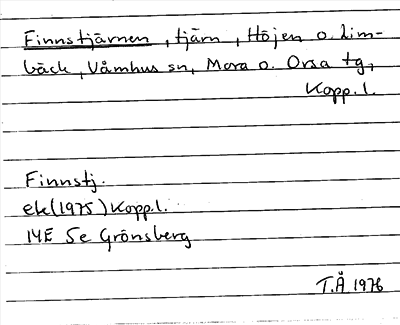 Finnstjärnen, tjärn, Höjen o. Lim-
bäck, Våmhus sn, Mora o. Orsa tg,
Kopp.l.
Finnstj.
ek(1975) Kopp.l.
14E 5e Grönsberg
T.Å 1976